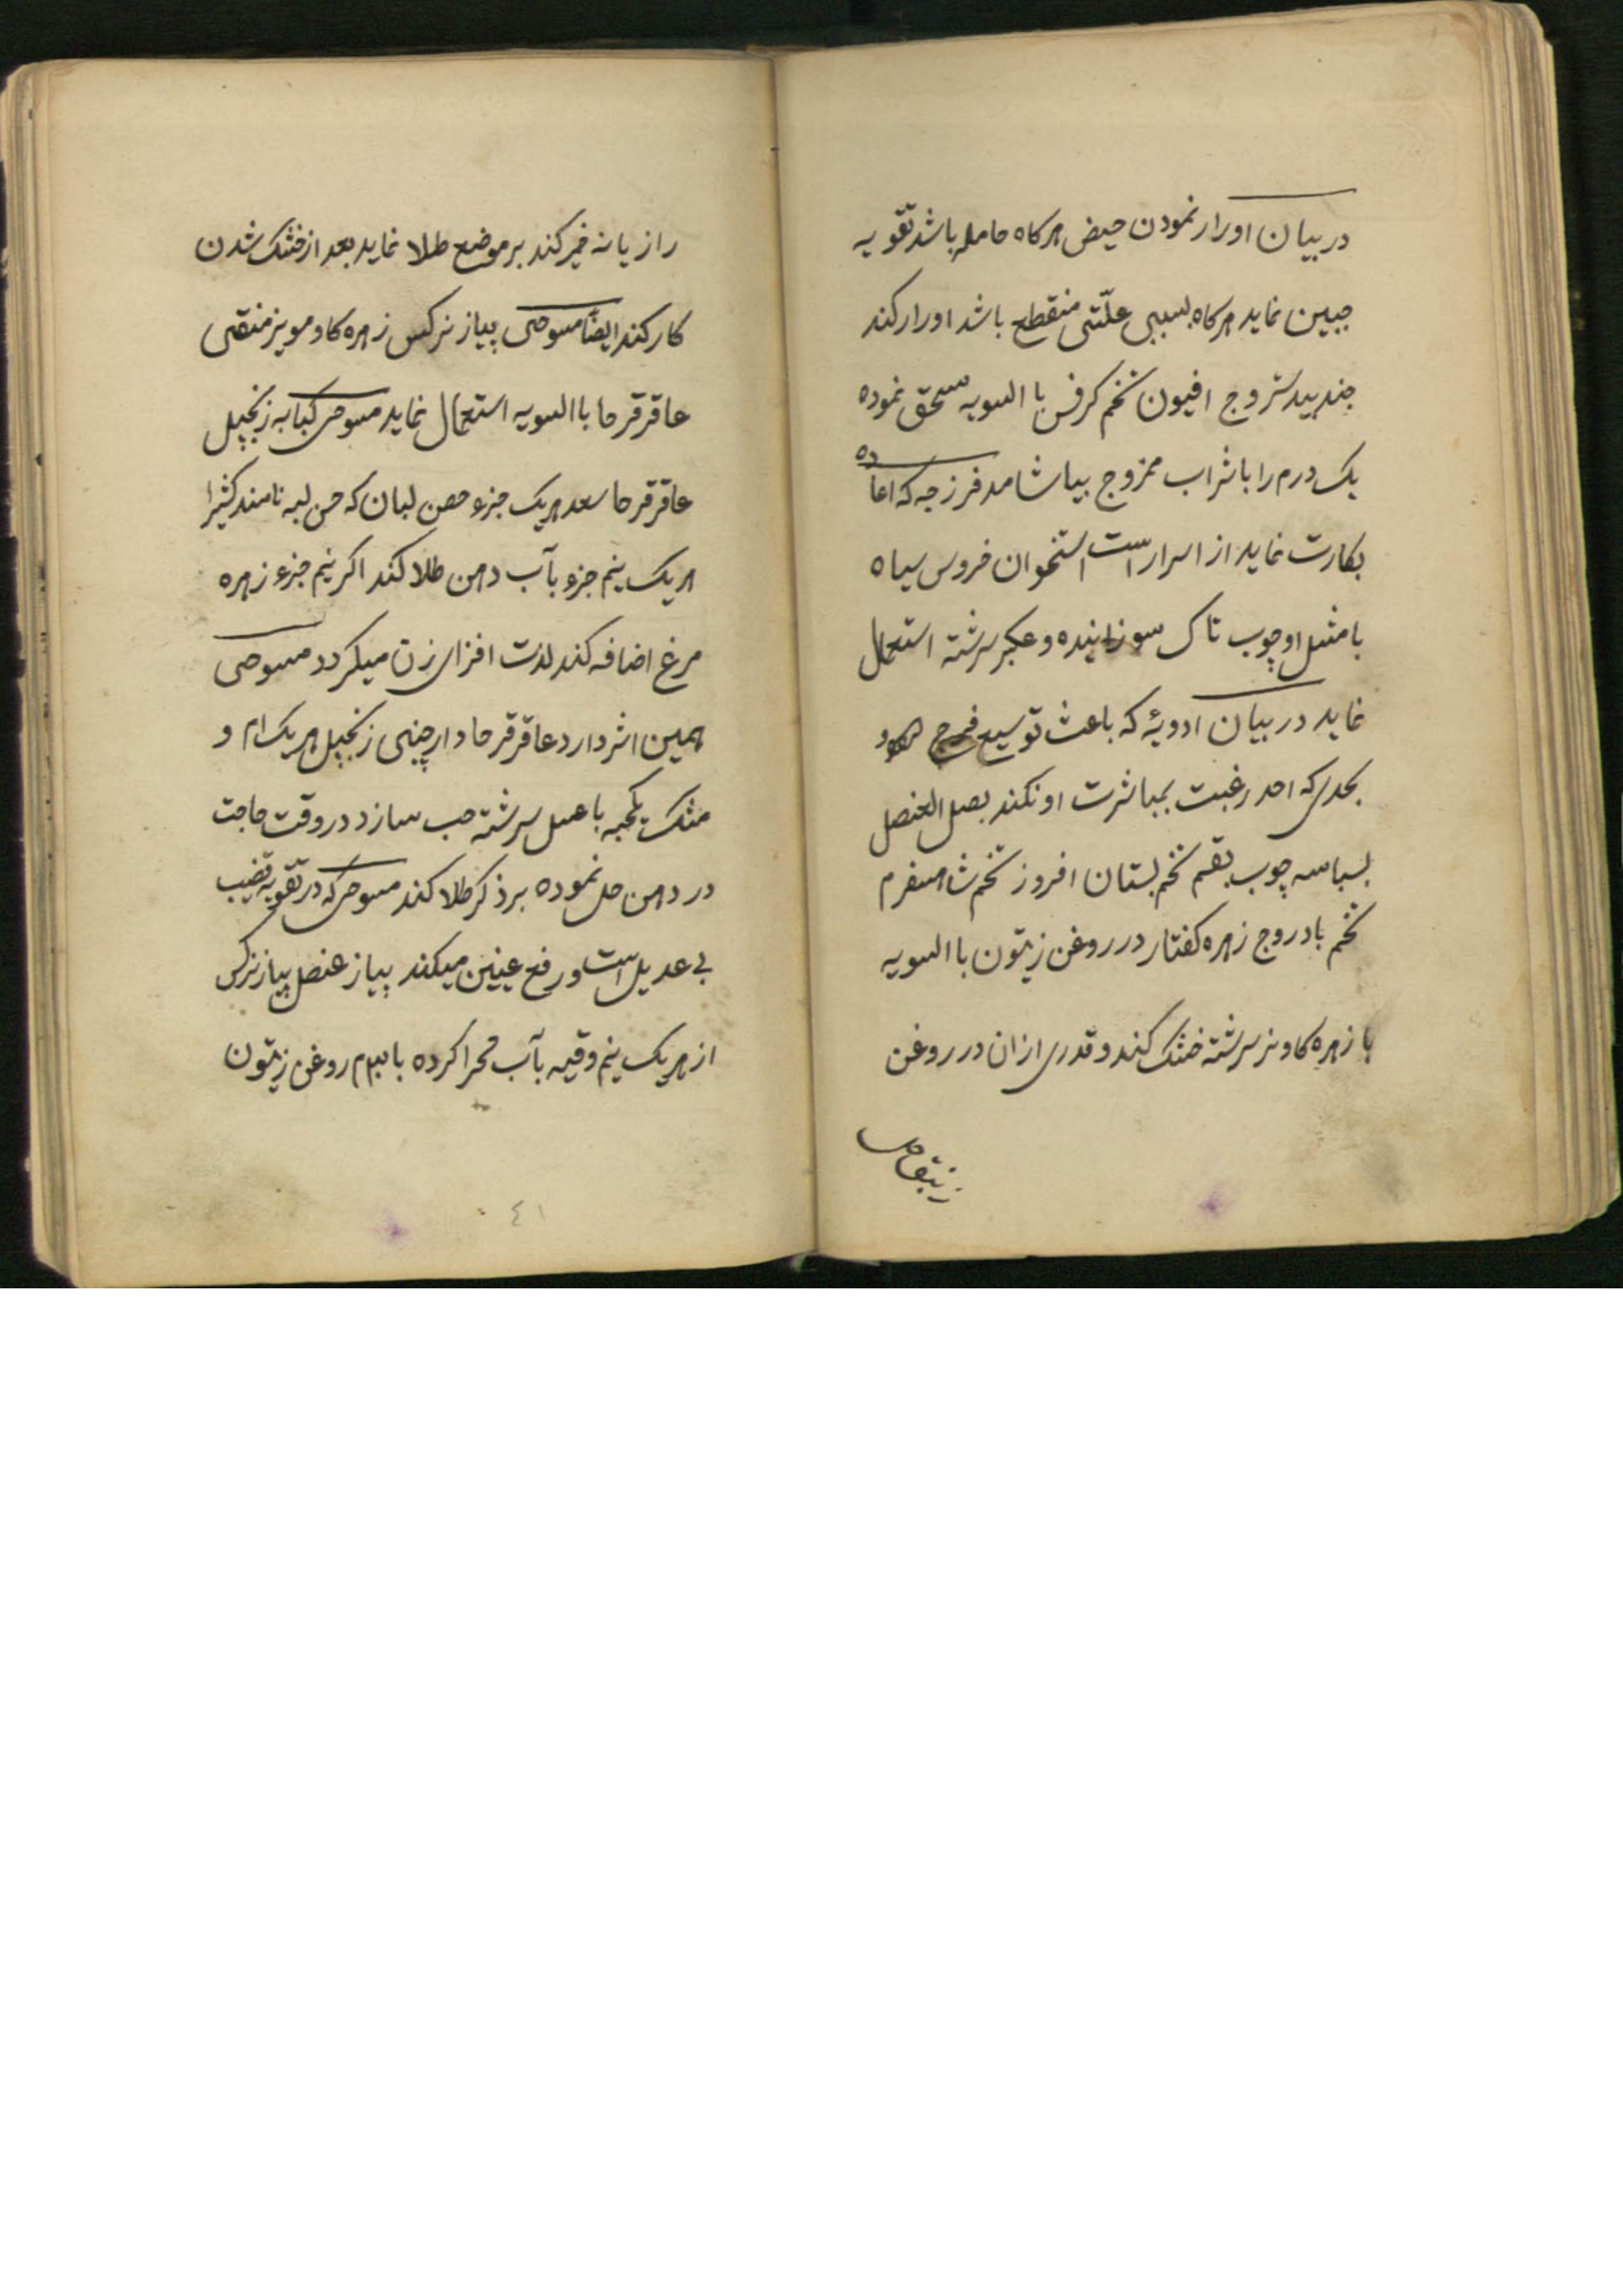 در بیان اورار نمودن حیض هرکاه حامله باشد تقویه
جبین نماید هرکاه بسببی علّتی منقطع باشد اورار کند
جندبیدستروج افیون تخم کرفس با السویه سحق نموده
یک درم را با شراب ممزوج بیاشامد فرزجه که اعاده
بکارت نماید از اسرار است استخوان خروس سیاه
با مثل او چوب تاک سوزانیده و عکبر سرشته استعمال
نماید در بیان ادویهٔ که باعث توسیع فرج
بحدی که احد رغبت بمباشرت او نکند بصل العنصل
بسباسه چوب بقم تخم بستان افروز تخم شاهسفرم
تخم بادروج زهره کفتار در روغن زیتون با السویه
با زهره کاو نر سرشته خشک کند و قدری ازان در روغن
زنبق حل
رازیانه خمیر کند بر موضع طلا نماید بعد از خشک شدن
کار کند ایضاً مسوحی پیاز نرکس زهره کاو مویز منقی
عاقرقرحا با السویه استعمال نماید مسوحی کبابه زنجبیل
عاقرقرحا سعد هریک جزو حصن لبان که حسن لبه نامند کثیرا
هریک نیم جزو بآب دهن طلا کند اکر نیم جزء زهره
مرغ اضافه کند لذت افزای زن میکردد مسوحی
همین اثر دارد عاقرقرحا دارچینی زنجبیل هریک ۲م و
مشک یکحبه با عسل سرشته حب سازد در وقت حاجت
در دهن حل نموده بر ذکر طلا کند مسوحی که در تقویه قضیب
بی عدیل است و رفع عینین میکند پیاز عنصل پیاز نرکس
از هریک نیم وقیه بآب محرا کرده با روغن زیتون
٤١